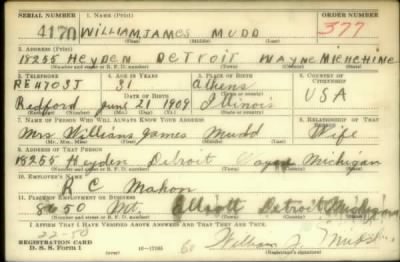 SERIAL NUMBER 1. Name (Print) ORDER NUMBER
4170 WILLIAM JAMES MUDD 377
(First) (Middle) (Last)
2. Address (Print)
18255 HEYDEN DETROIT WAYNE MICHIGAN
(Number and street or R. F. D. number) (Town) (County) (State)
3. Telephone 4. Age in Years 5. Place of Birth 6. Country of Citizenship
RE 4703J 31 Athens USA
Date of Birth (Town or county)
Redford June 21 1909 Illinois
(Exchange) (Number) (Mo.) (Day) (Yr.) (State or country)
7. Name of Person Who Will Always Know Your Address 8. Relationship of That Person
Mrs Williams James Mudd Wife
(Mr., Mrs., Miss) (First) (Middle) (Last)
9. Address of That Person
18255 Heyden Detroit Wayne Michigan
(Number and street or R. F. D. number) (Town) (County) (State)
10. Employer's Name
R C Mahon
11. Place of Employment or Business
8650 Mt. Elliott Detroit Michigan
(Number and street or R. F. D. number) (Town) (County) (State)
I Affirm That I Have Verified Above Answers and That They Are True.
REGISTRATION CARD
D. S. S. Form 1
William J. Mudd